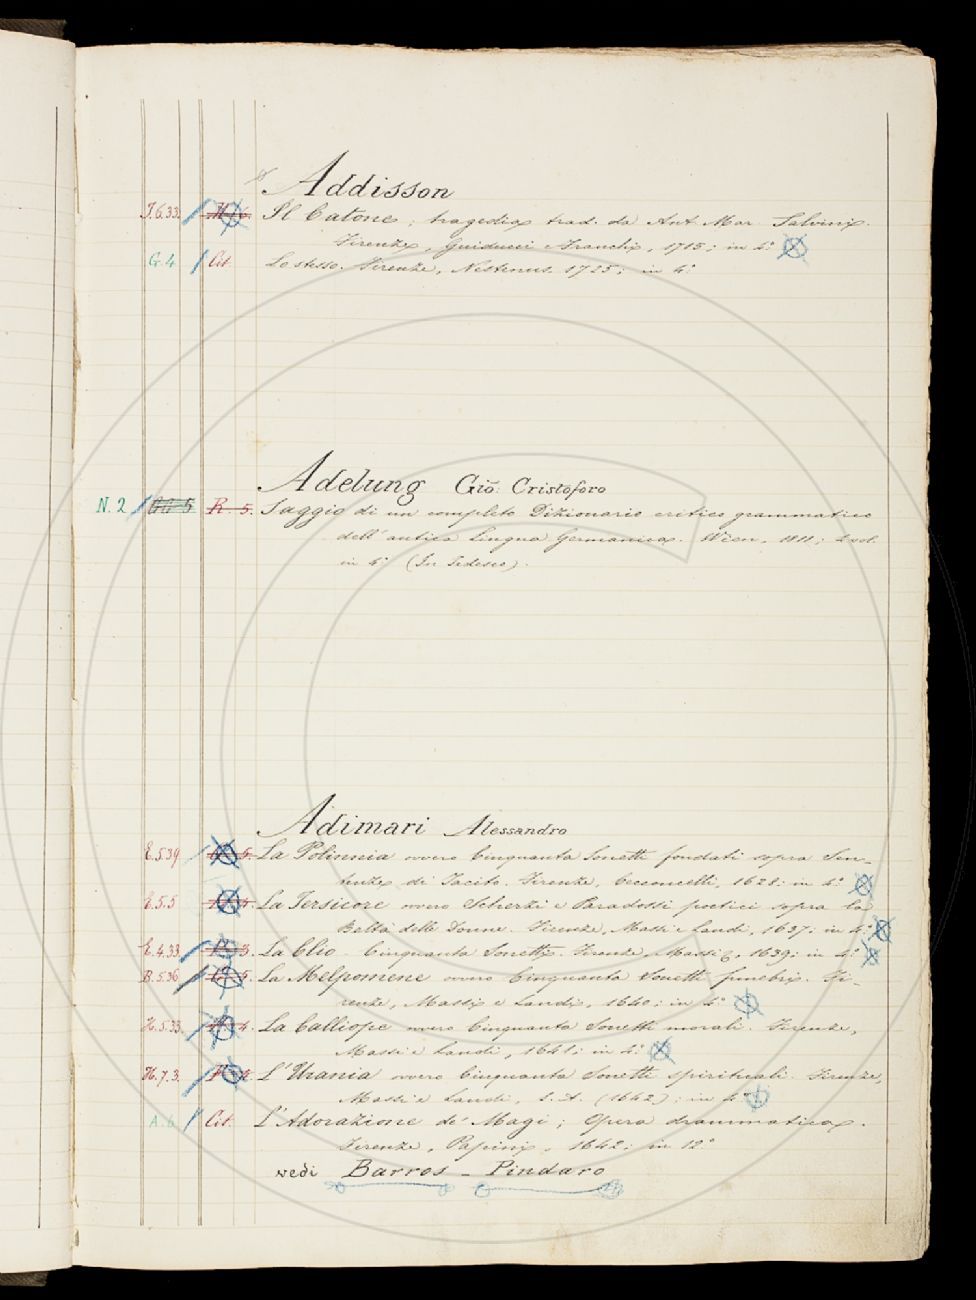 Addisson
I.6.33. Il Catone; tragedia trad. da Ant. Mar. Salvini.
Firenze, Guiducci e Franchi, 1715; in 4.°
G.4 Cit. Lo stesso. Firenze, Nestenus. 1725; in 4.°
Adelung Gio: Cristoforo
N.2 GG.5 R.5. Saggio di un completo Dizionario critico grammatico
dell'antica Lingua Germanica. Wien, 1811; 4 vol.
in 4.° (In Tedesco).
Adimari Alessandro
E.5.39 La Polinnia ovvero Cinquanta Sonetti fondati sopra Sen-
tenze di Tacito. Firenze, Cecconcelli, 1628: in 4.°
E.5.5 La Tersicore ovvero Scherzi e Paradossi poetici sopra la
Beltà delle Donne. Firenze, Massi e Landi, 1637; in 4.°
E.4.33 La Clio. Cinquanta Sonetti. Firenze, Massi, 1639; in 4.°
B.5.36 La Melpomene ovvero Cinquanta Sonetti funebri. Fi-
renze, Massi e Landi, 1640; in 4.°
H.5.33. La Calliope ovvero Cinquanta Sonetti morali. Firenze,
Massi e Landi, 1641; in 4.°
H.7.3. L'Urania ovvero Cinquanta Sonetti spirituali. Firenze,
Massi e Landi, s.A. (1642); in 4.°
A.6 Cit. L'Adorazione de' Magi; Opera drammatica.
Firenze, Papini, 1642; in 12.°
vedi Barros - Pindaro